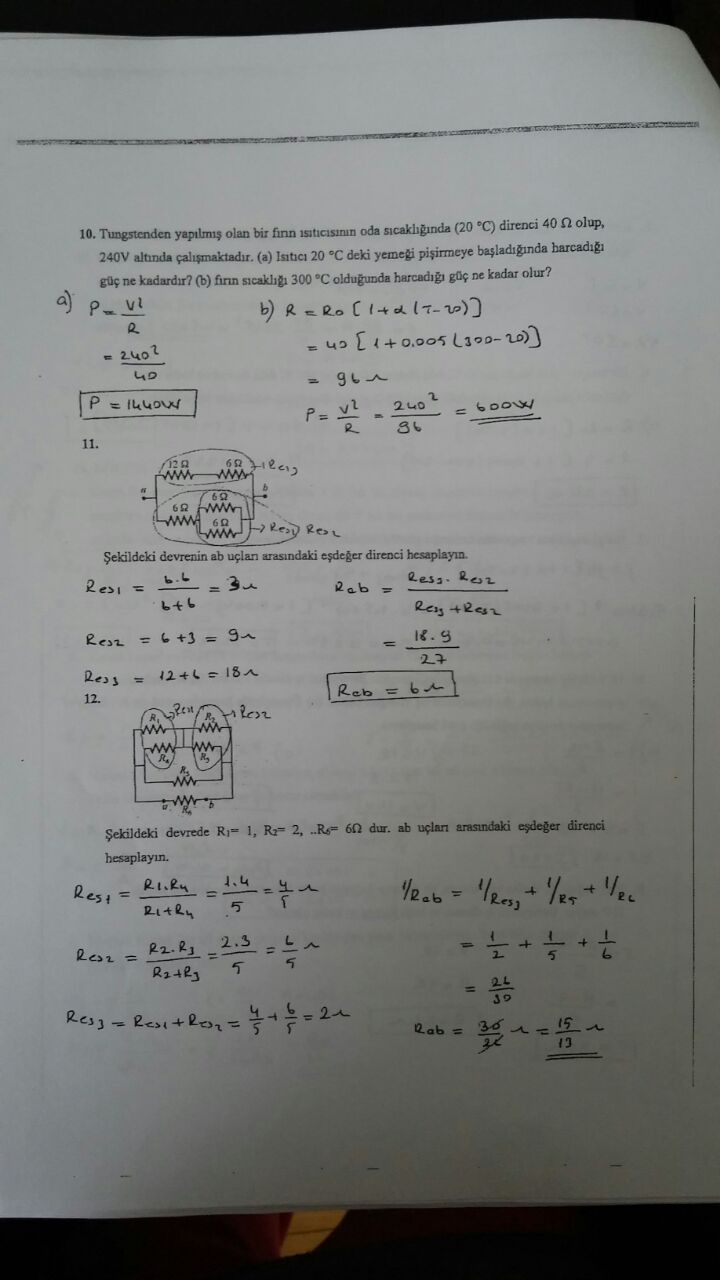 10. Tungstenden yapılmış olan bir fırın ısıtıcısının oda sıcaklığında (20 °C) direnci 40 Ω olup,
240V altında çalışmaktadır. (a) Isıtıcı 20 °C deki yemeği pişirmeye başladığında harcadığı
güç ne kadardır? (b) fırın sıcaklığı 300 °C olduğunda harcadığı güç ne kadar olur?
a) P = V²/R
= 240²/40
P = 1440W
b) R = R0 [1+α(T-20)]
= 40 [1+0.005(300-20)]
= 96 Ω
P = V²/R = 240²/96 = 600W
11.
12 Ω 6 Ω Reş3
a b
6 Ω
6 Ω
6 Ω Reş1 Reş2
Şekildeki devrenin ab uçları arasındaki eşdeğer direnci hesaplayın.
Reş1 = 6.6/6+6 = 3Ω
Reş2 = 6+3 = 9Ω
Reş3 = 12+6 = 18Ω
Rab = Reş3.Reş2/Reş3+Reş2
= 18.9/27
Rab = 6Ω
12.
R1 Reş1 R2 Reş2
R4 R3
R5
a R6 b
Şekildeki devrede R1= 1, R2= 2, ..R6= 6Ω dur. ab uçları arasındaki eşdeğer direnci
hesaplayın.
Reş1 = R1.R4/R1+R4 = 1.4/5 = 4/5 Ω
Reş2 = R2.R3/R2+R3 = 2.3/5 = 6/5 Ω
Reş3 = Reş1+Reş2 = 4/5+6/5 = 2Ω
1/Rab = 1/Reş3 + 1/R5 + 1/R6
= 1/2 + 1/5 + 1/6
= 26/30
Rab = 30/26 Ω = 15/13 Ω